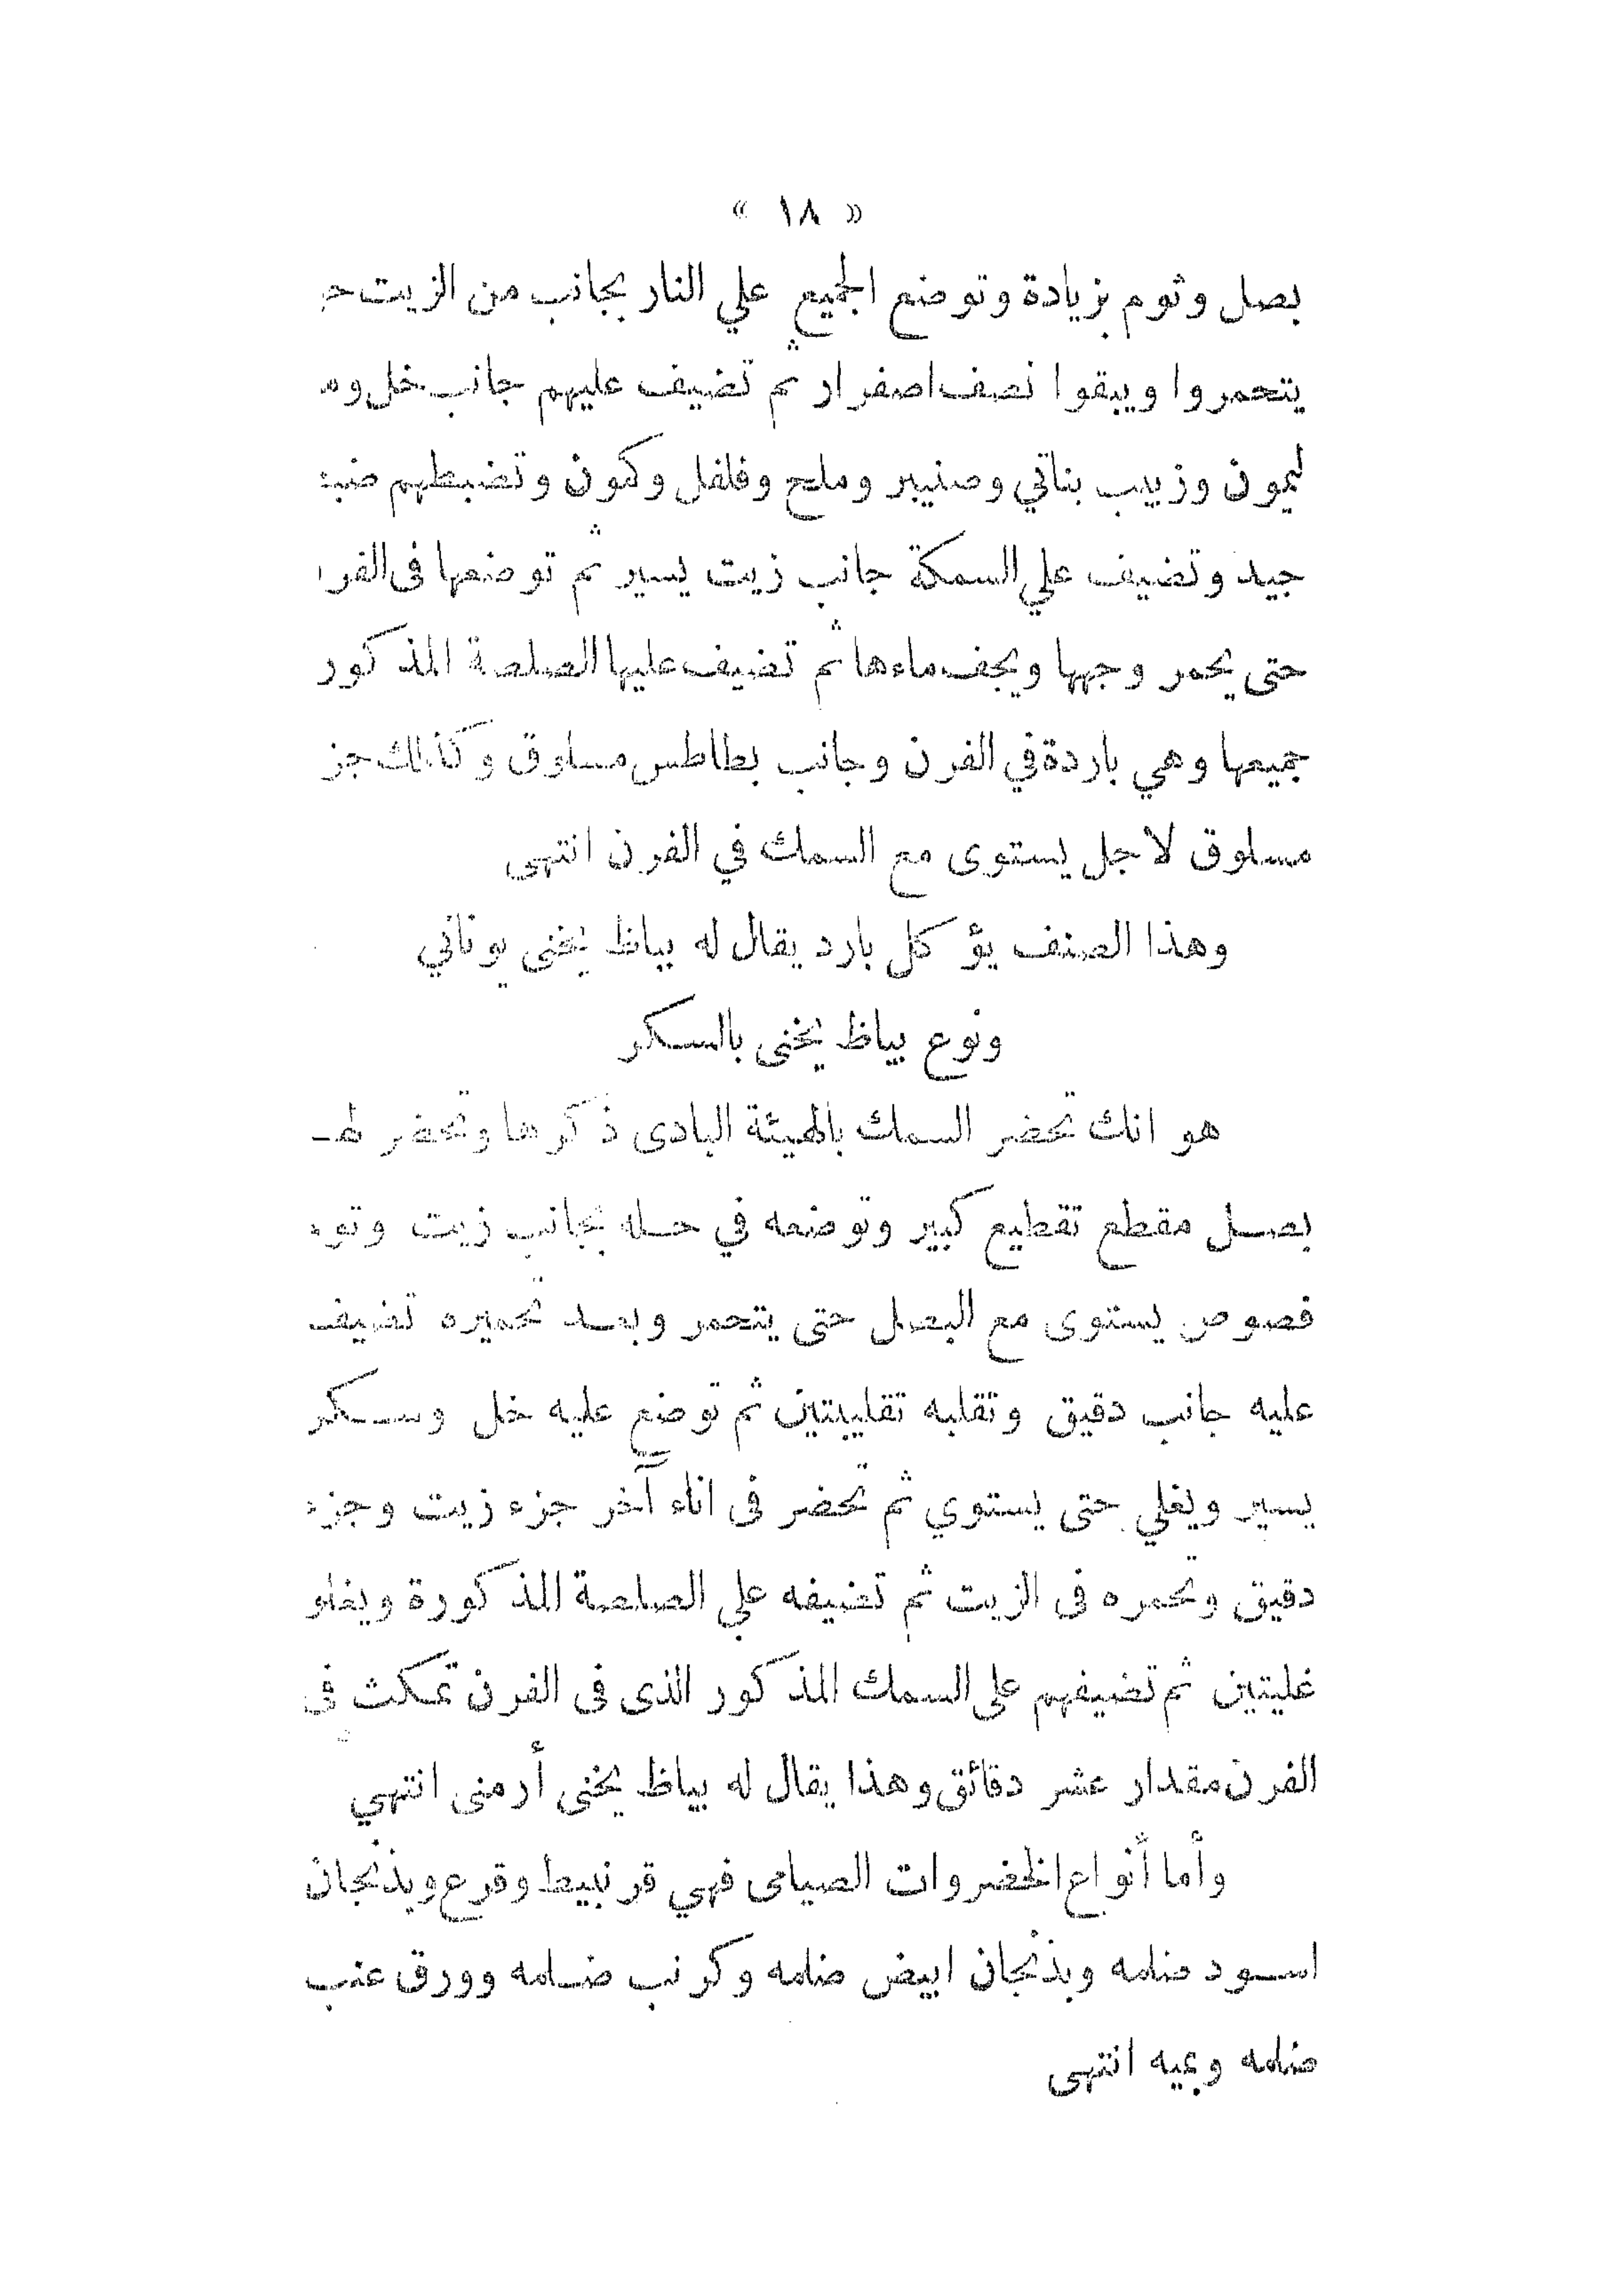 « ١٨ »
بصل وثوم بزيادة وتوضع الجميع علي النار بجانب من الزيت
يتحمروا ويبقوا نصف اصفرار ثم تضيف عليهم جانب خل
ليمون وزبيب بناتي وصنيبر وملح وفلفل وكمون وتضبطهم
جيد وتضيف علي السمكة جانب زيت يسير ثم توضعها فى
حتى يحمر وجهها ويجف ماءها ثم تضيف عليها الصلصة المذكور
جميعها وهي باردة في الفرن وجانب بطاطس مسلوق وكذلك
مسلوق لاجل يستوى مع السمك في الفرن انتهى
وهذا الصنف يؤكل بارد يقال له بياظ يخنى يوناني
ونوع بياظ يخنى بالسكر
هو انك تحضر السمك بالهيئة البادى ذكرها وتحضر
بصل مقطع تقطيع كبير وتوضعه في حله بجانب زيت
فصوص يستوى مع البصل حتى يتحمر وبعد تحميره تضيف
عليه جانب دقيق وتقلبه تقليبتين ثم توضع عليه خل وسكر
يسير ويغلي حتى يستوي ثم تحضر فى اناء آخر جزء زيت وجزء
دقيق وتحمره فى الزيت ثم تضيفه علي الصلصة المذكورة ويغلو
غليتين ثم تضيفهم على السمك المذكور الذى فى الفرن تمكث في
الفرن مقدار عشر دقائق وهذا يقال له بياظ يخنى أرمنى انتهي
وأما أنواع الخضروات الصيامى فهي قرنبيط وقرع وبذنجان
اسود ضلمه وبذنجان ابيض ضلمه وكرنب ضلمه وورق عنب
ضلمه وبميه انتهى